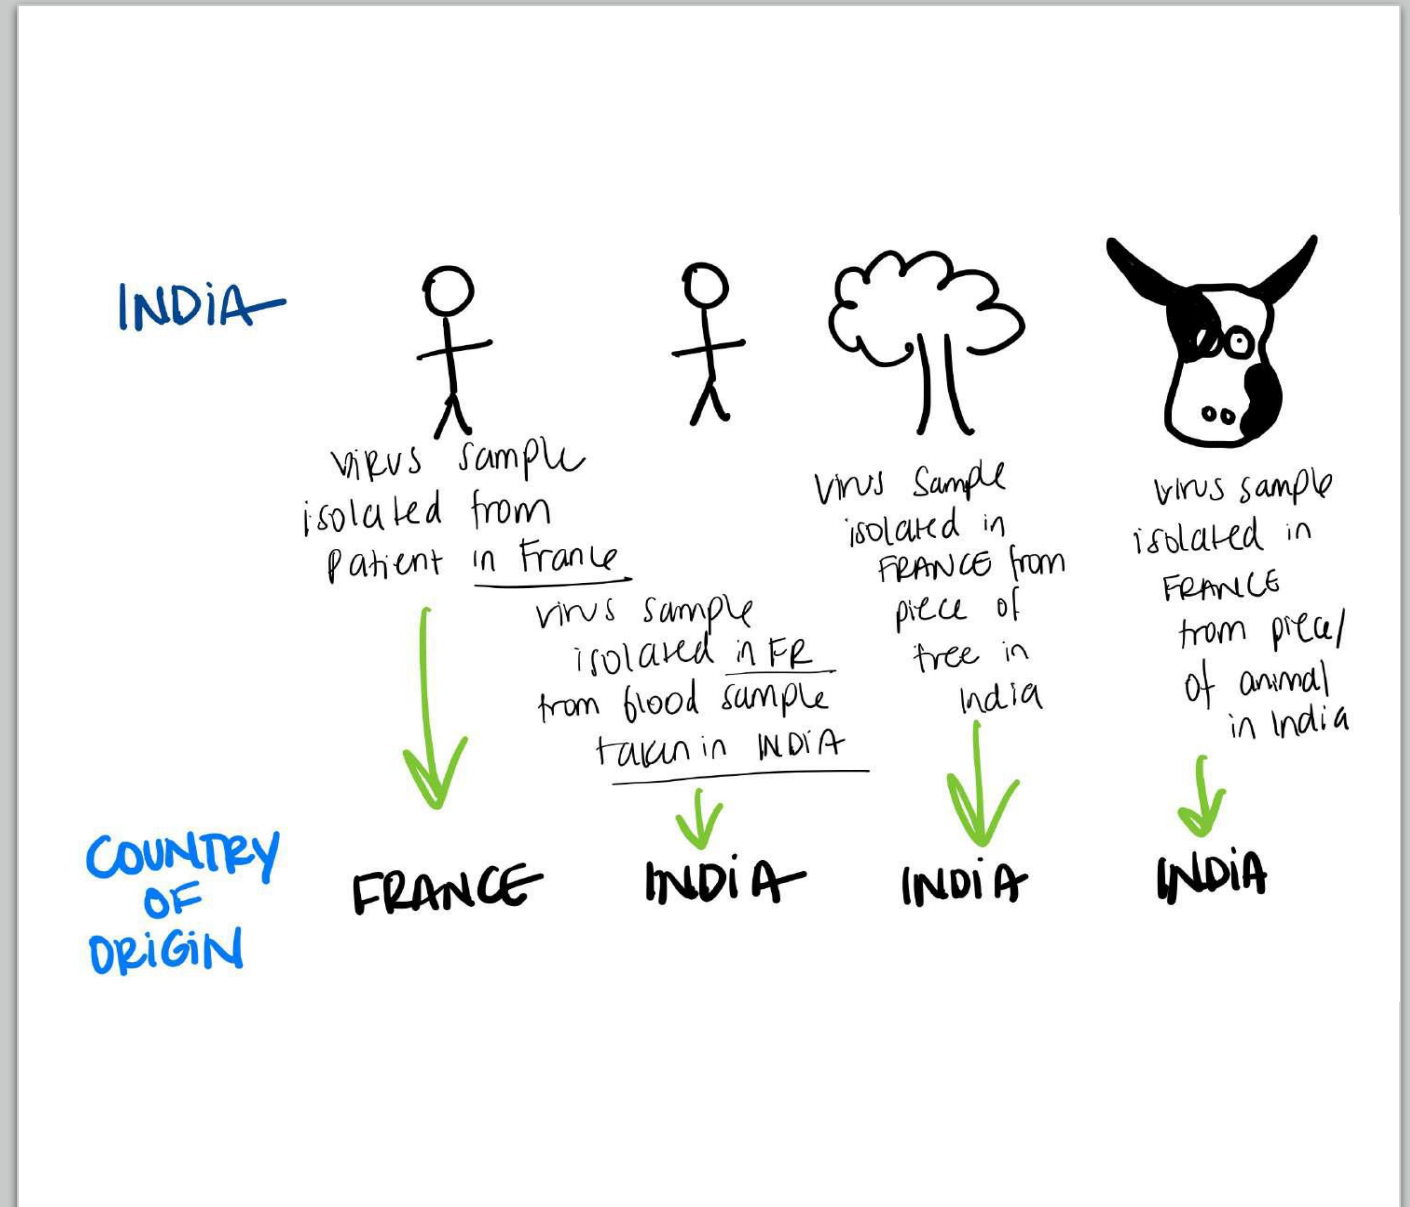 INDiA
ViRUS sample
isolated from
patient in France
virus sample
isolated in FR
from blood sample
taken in INDiA
Virus Sample
isolated in
FRANCE from
piece of
tree in
India
virus sample
isolated in
FRANCE
from piece/
of animal
in India
COUNTRY
OF
ORiGiN
FRANCE
INDiA
INDiA
INDiA